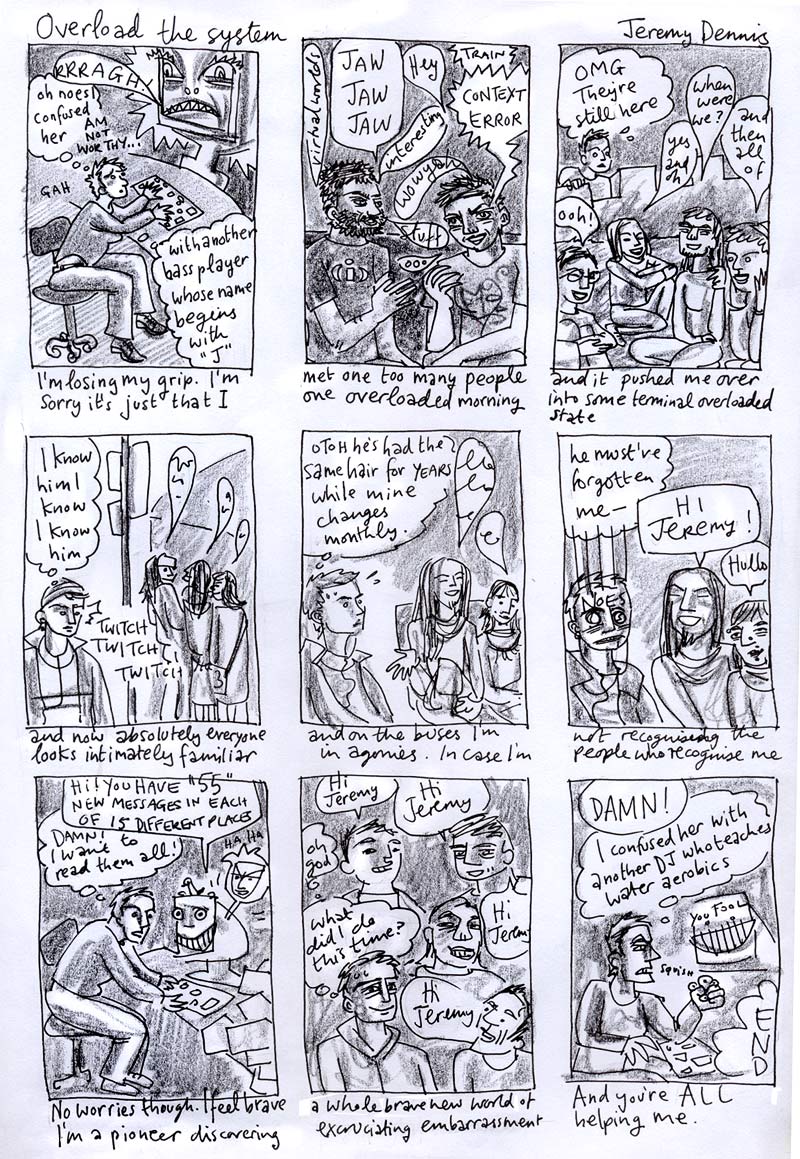 Overload the system
Jeremy Dennis
RRRAGH
oh noes I
confused
her AM
NOT
WORTHY...
GAH
with another
bass player
whose name
begins
with
"J"
I'm losing my grip. I'm
Sorry it's just that I
virtual worlds
JAW
JAW
JAW
Hey
interesting
wow you
stuff
TRAIN
CONTEXT
ERROR
met one too many people
one overloaded morning
OMG
They're
still here
ooh!
yes
and
oh
when
were
we?
and
then
all
of
and it pushed me over
into some terminal overloaded
state
I know
him I
know
I know
him
TWITCH
TWITCH
TWITCH
and now absolutely everyone
looks intimately familiar
OTOH he's had the
same hair for YEARS
while mine
changes
monthly.
and on the buses I'm
in agonies. In case I'm
he must've
forgotten
me—
HI
JEREMY!
Hullo
not recognising the
people who recognise me
Hi! YOU HAVE "55"
NEW MESSAGES IN EACH
OF 15 DIFFERENT PLACES
DAMN!
I want to
read them all!
HA HA
No worries though. I feel brave
I'm a pioneer discovering
Hi
Jeremy
Hi
Jeremy
oh
god
what
did I do
this time?
Hi
Jeremy
Hi
Jeremy
a whole brave new world of
excruciating embarrassment
DAMN!
I confused her with
another DJ who teaches
water aerobics
YOU FOOL
SQUISH
END
And you're ALL
helping me.